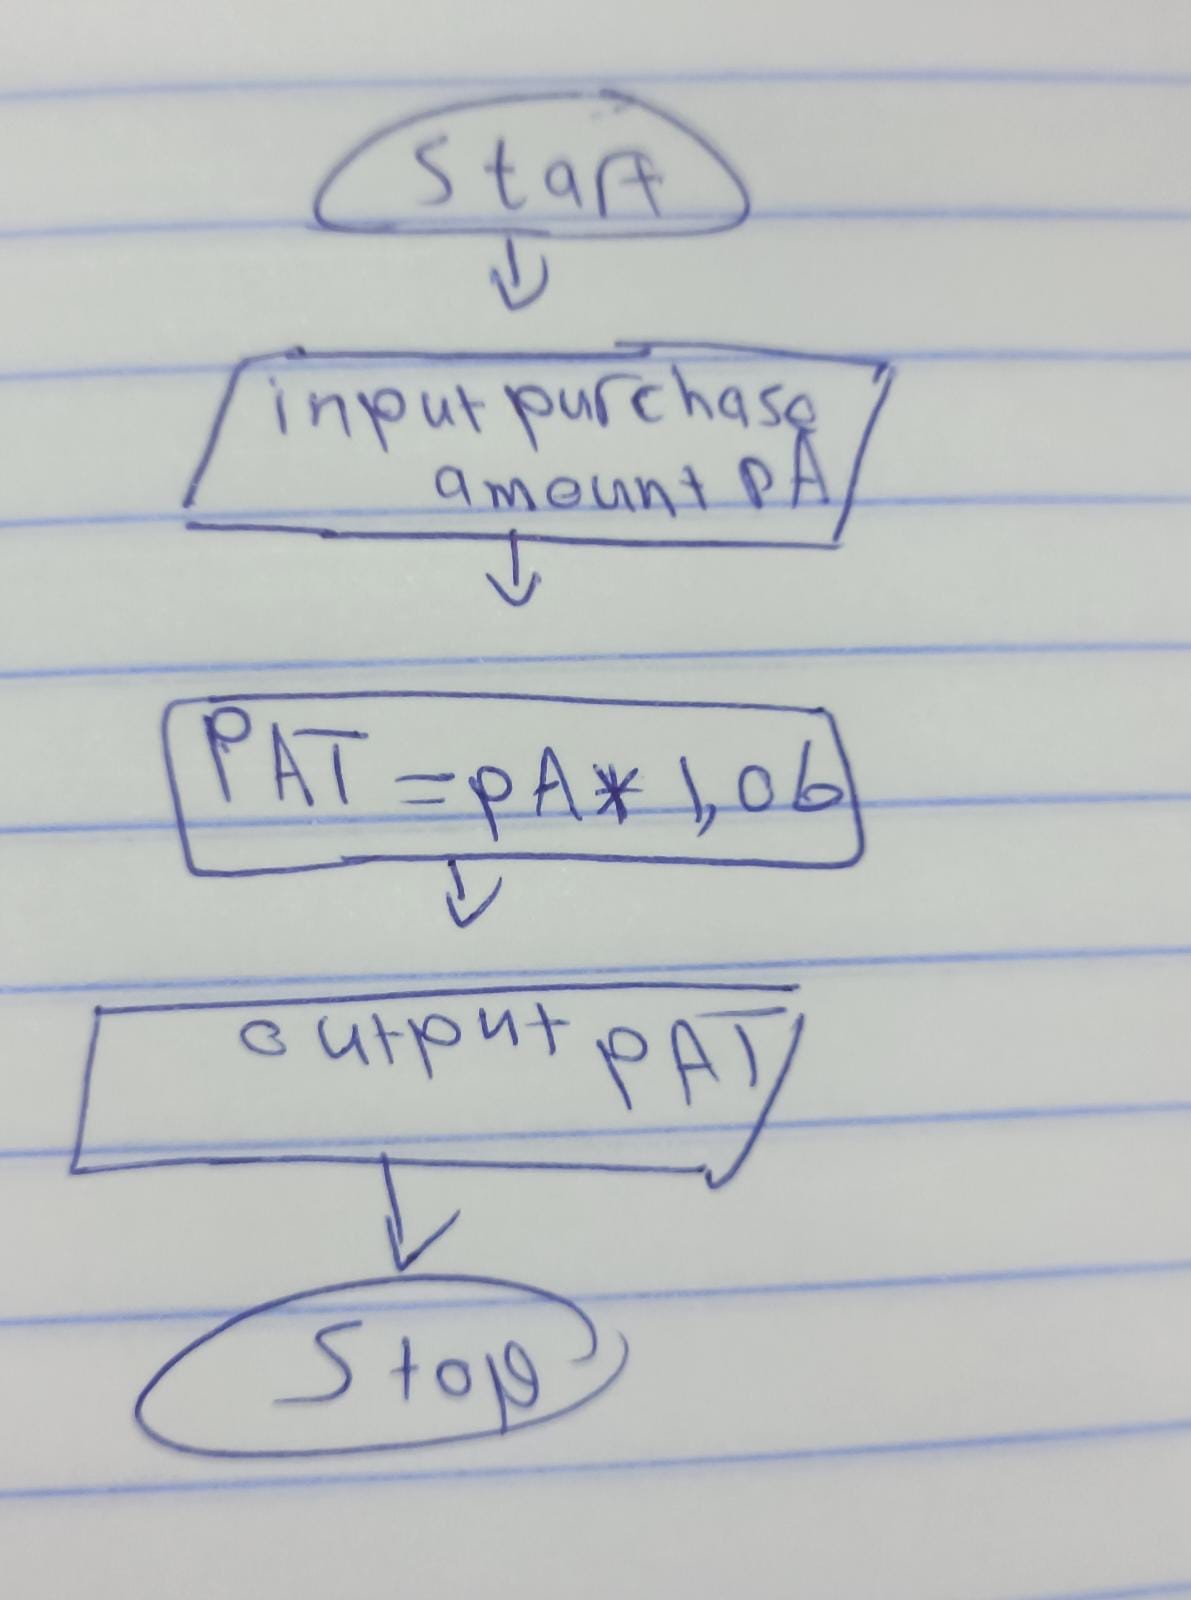 Start
input purchase
amount pA
PAT = pA * 1,06
output pAT
Stop